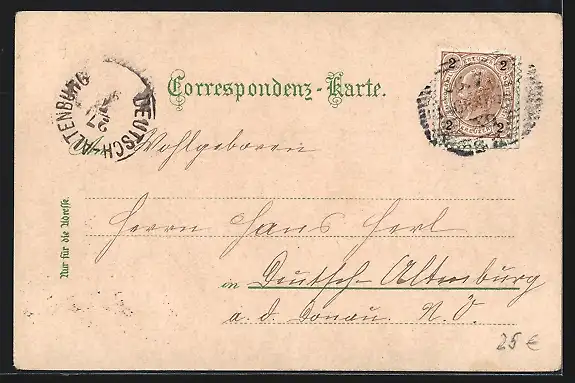 Correspondenz-Karte.
DEUTSCH-ALTENBURG
27
2 2
2 2
An Wohlgeboren
Herrn Hans Herl
in Deutsch-Altenburg
a. d. Donau N. Ö.
Nur für die Adresse.
25 €